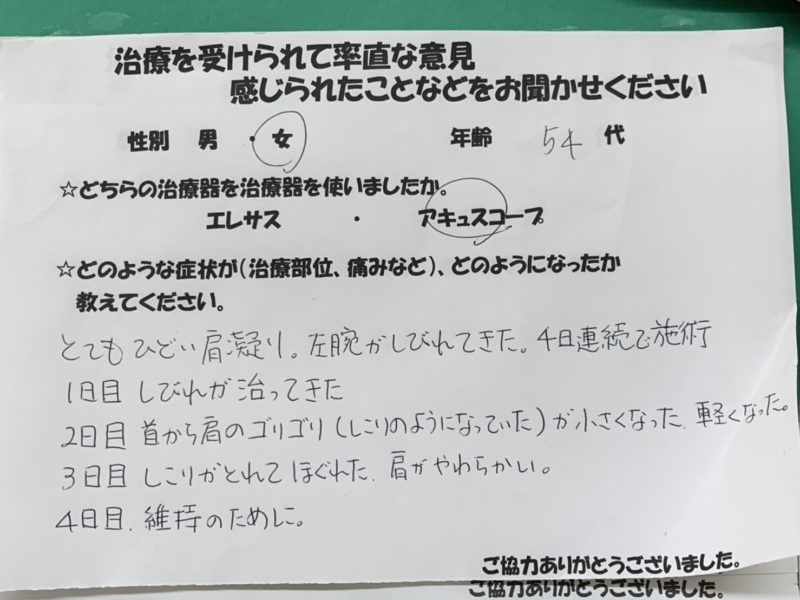 治療を受けられて率直な意見
感じられたことなどをお聞かせください
性別 男 ・ 女 年齢 54 代
☆どちらの治療器を治療器を使いましたか。
エレサス ・ アキュスコープ
☆どのような症状が(治療部位、痛みなど)、どのようになったか
教えてください。
とても ひどい肩凝り。左腕がしびれてきた。4日連続で施術
1日目 しびれが治ってきた
2日目 首から肩のゴリゴリ(しこりのようになっていた)が小さくなった、軽くなった。
3日目 しこりがとれて ほぐれた、肩がやわらかい。
4日目、維持のために。
ご協力ありがとうございました。
ご協力ありがとうございました。